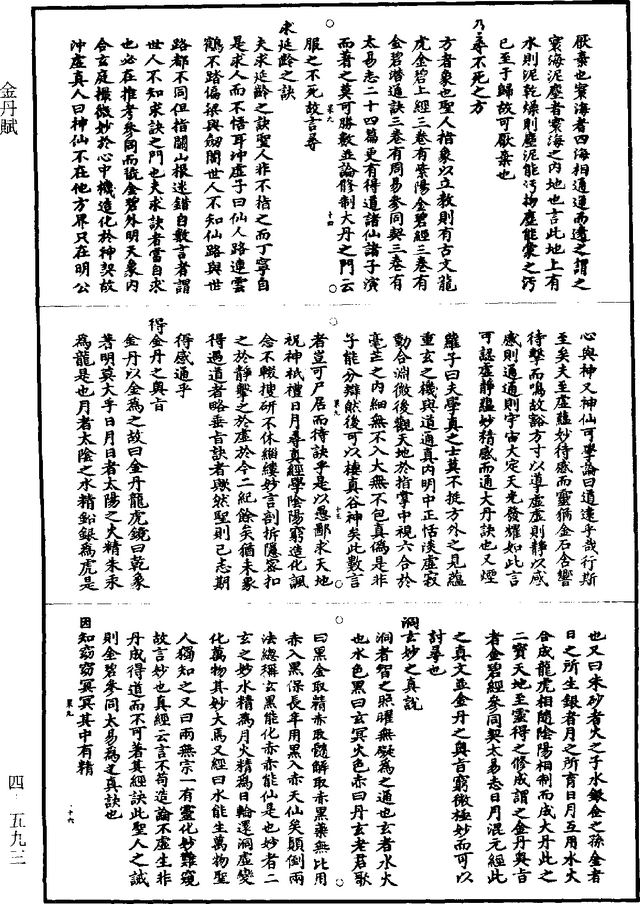 金丹賦
四·五九三
厭棄也寰海者四海相通通而遶之謂之
寰海泥塵者寰海之內地也言此地上有
水則泥乾燥則塵泥能污物塵能蒙之污
已至于歸故可厭棄也
乃尋不死之方
方者象也聖人指象以立教則有古文龍
虎金碧上經三卷有紫陽金碧經三卷有
金碧潛通訣三卷有周易參同契三卷有
太易志二十四篇更有得道諸仙諸子演
而著之莫可勝數並論修制大丹之門云
服之不死故言尋
求延齡之訣
夫求延齡之訣聖人非不指之而丁寧自
是求人而不悟耳沖虛子曰仙人路連雲
鶴不踏偏梁與劒閣世人不知仙路與世
路都不同但指關山根迷錯自數言者謂
世人不知求訣之門也夫求訣者當自求
也必在推考參同而㽞金碧外明天象內
合玄庭撮微妙於心中機造化於神契故
沖虛真人曰神仙不在他方界只在明公
心與神又神仙可學論曰道遠乎哉行斯
至矣夫至虛蘊妙待感而靈猶金石含響
待擊而鳴故豁方寸以導虛虛則靜以感
感則通通則宇宙大定天光發耀如此言
可認虛靜蘊妙精感而通大丹訣也又煙
蘿子曰夫學真之士莫不挺方外之見蘊
重玄之機與道通真內明中正恬淡虛寂
動合淵微後觀天地於指掌中視六合於
毫芒之內細無不入大無不包真偽是非
子能分辯然後可以棲真谷神矣此數言
者豈可戶居而待訣乎是以愚鄙求天地
祝神祇禮日月尋真經學陰陽窮造化諷
念不輟搜研不休緇縷妙言剖拆隱密扣
之於靜擊之於虛於今二紀餘矣猶未象
得遇道者略垂旨訣者瞭然聖則已志期
得感通乎
得金丹之奧旨
金丹以金爲之故曰金丹龍虎鏡曰乾象
著明莫大乎日月日者太陽之火精朱汞
爲龍是也月者太陰之水精鉛銀爲虎是
也又曰朱砂者火之子水銀金之孫金者
日之所生銀者月之所育日月互用水火
合成龍虎相隨陰陽相制而成大丹此之
二寶天地至靈得之修成謂之金丹奧旨
者金碧經參同契太易志日月混元經此
之真文並金丹之奧旨窮微極妙而可以
討尋也
洞玄妙之真說
洞者智之照曜無礙爲之通也玄者水火
也水色黑曰玄冥火色赤曰丹玄老君歌
曰黑金取精赤取髓解取赤黑藥無比用
赤入黑保長年用黑入赤天仙矣顛倒兩
法總稱玄黑能化赤赤能仙是也妙者二
玄之妙水精爲月火精爲日輪還洞虛變
化萬物其妙大焉又經曰水能生萬物聖
人獨知之又曰兩無宗一有靈化妙難窺
故言妙也真經云言不苟造論不虛生非
丹成得道而不可著其經訣此聖人之誠
則金碧參同太易爲之真訣也
因知窈窈冥冥其中有精